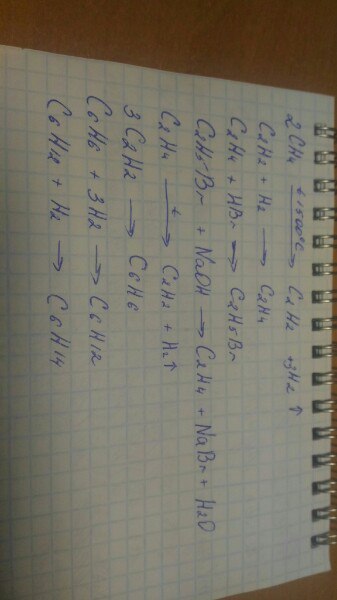 2CH4 t 1500°C → C2H2 + 3H2 ↑
C2H2 + H2 → C2H4
C2H4 + HBr → C2H5Br
C2H5Br + NaOH → C2H4 + NaBr + H2O
C2H4 t → C2H2 + H2↑
3C2H2 → C6H6
C6H6 + 3H2 → C6H12
C6H12 + H2 → C6H14